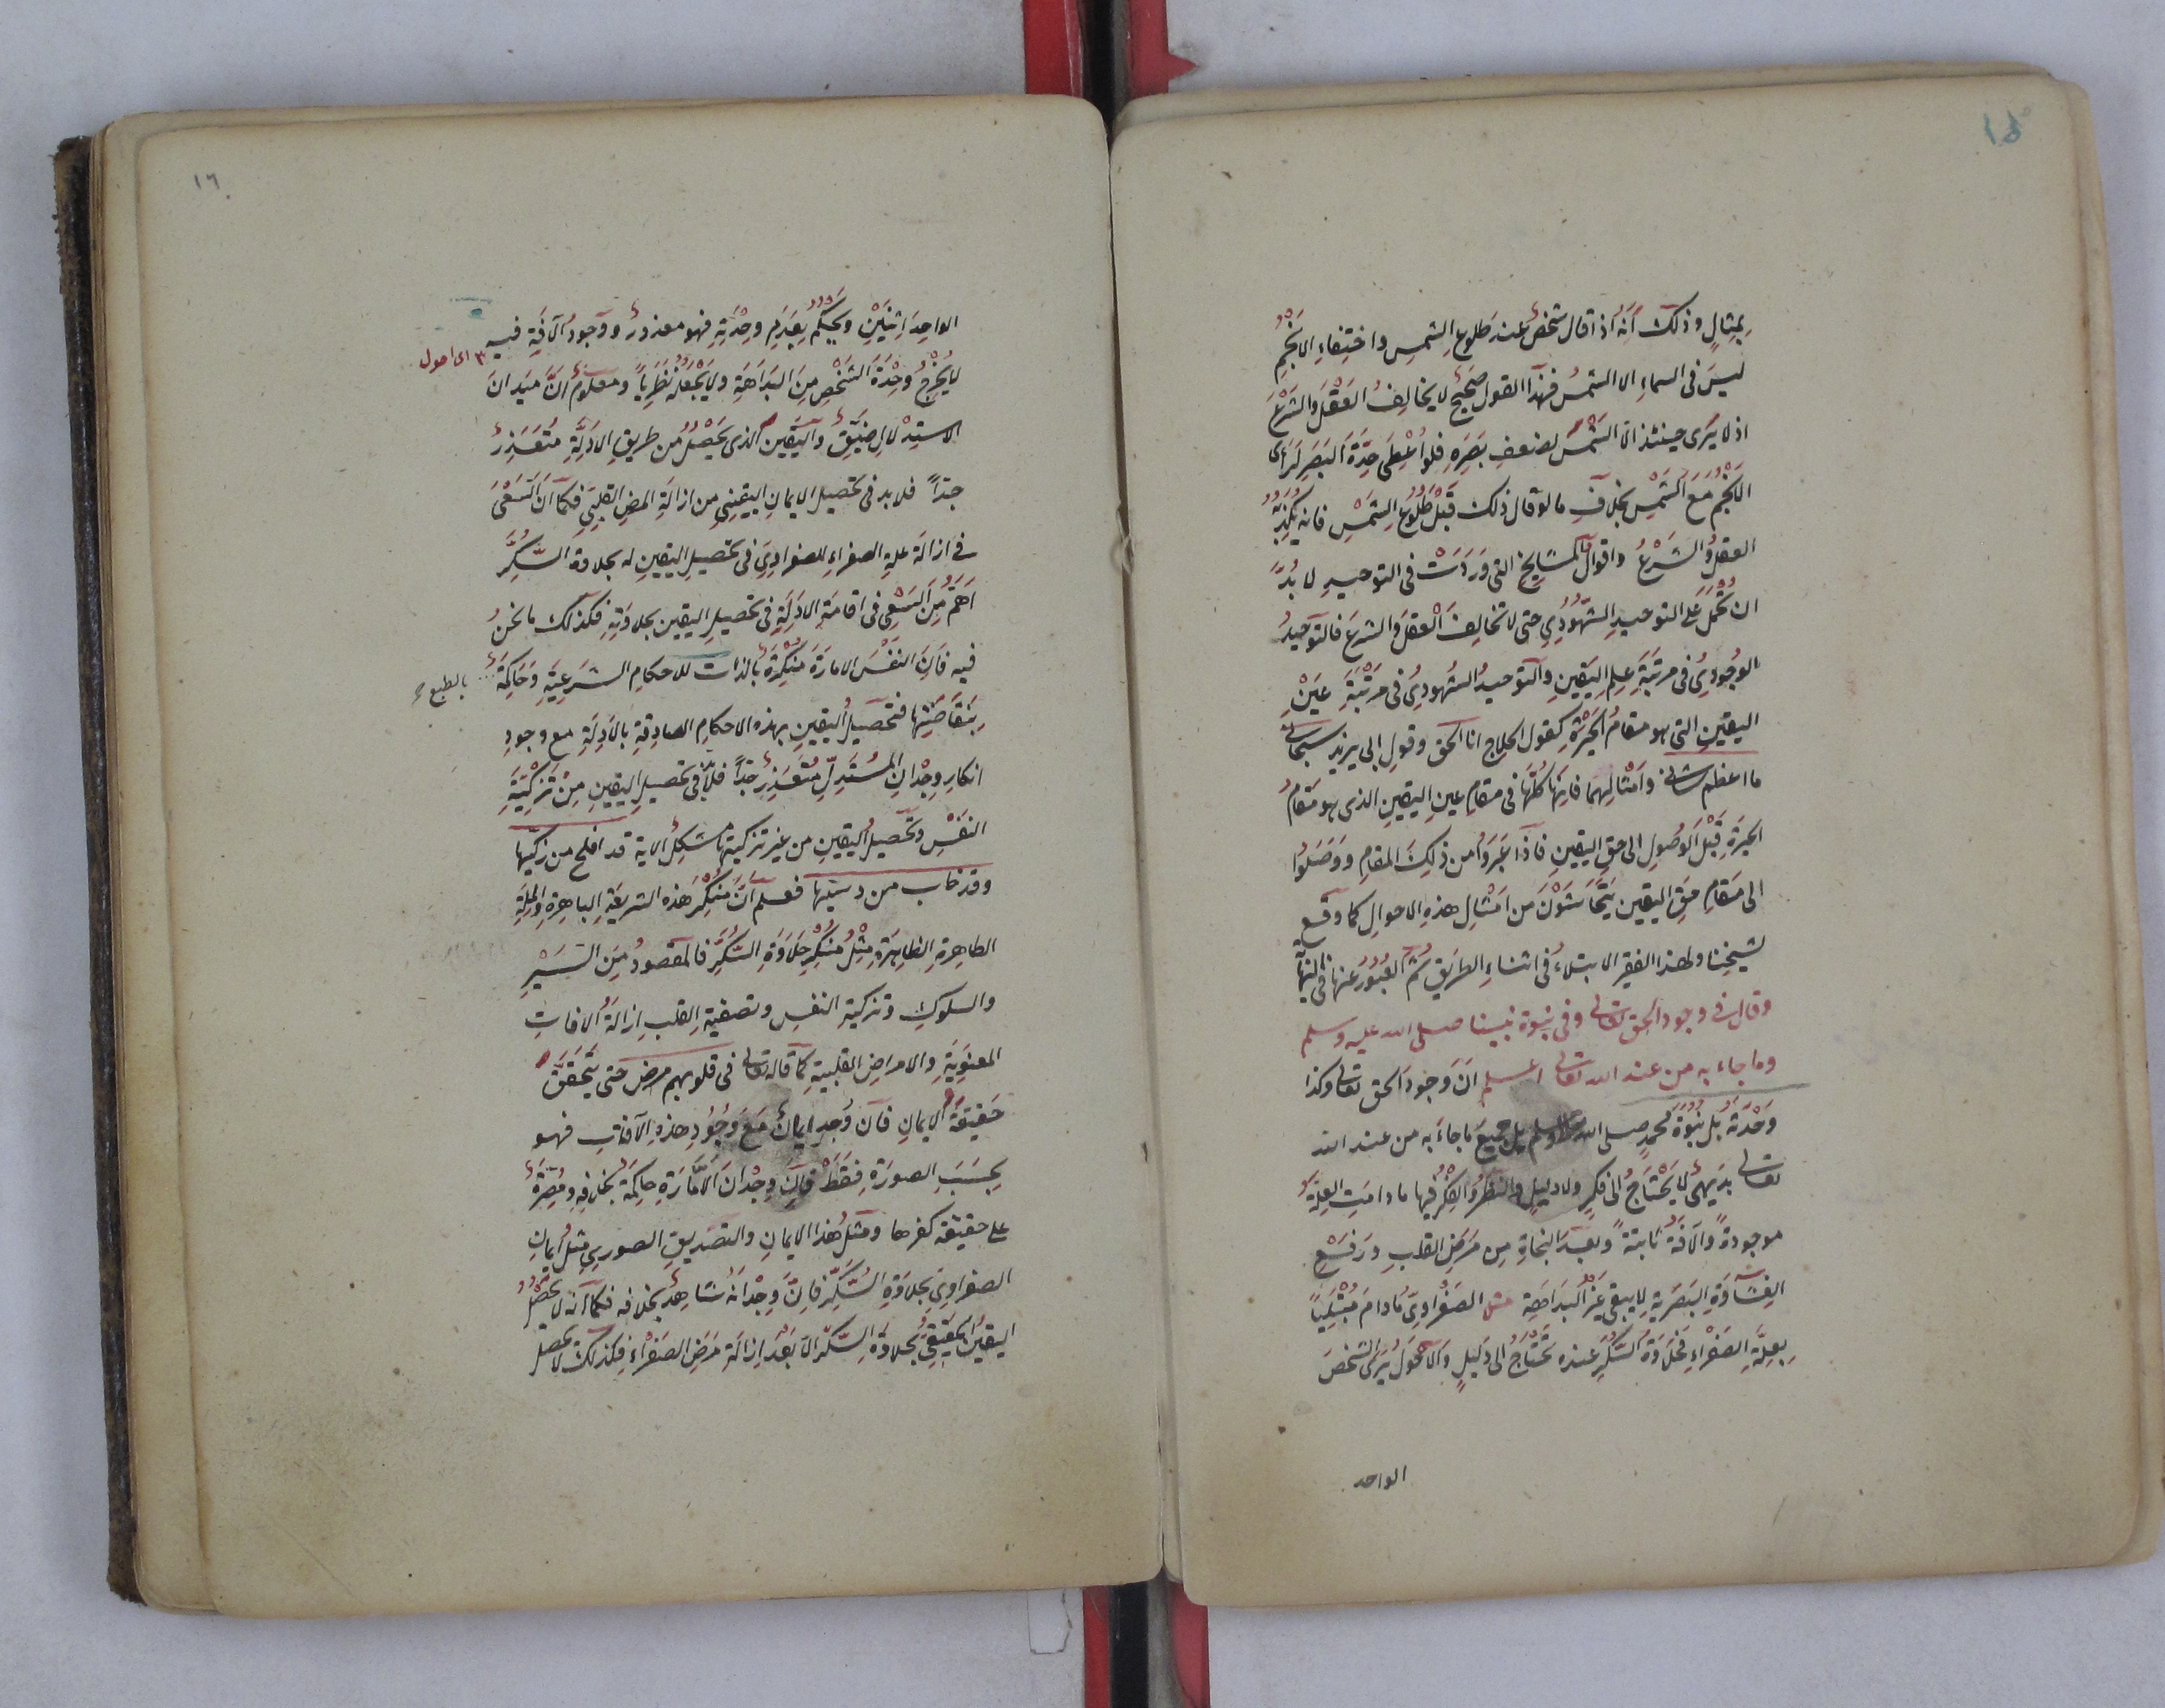 ١٥
بمثالٍ وذلك أنه اذا قال شخصٌ عند طلوعِ الشمسِ واختفاءِ الانجمِ
ليسَ فى السماءِ الا الشمسُ فهذا القول صحيحٌ لا يخالِفُ العقلَ والشرعَ
اذ لا يَرى حينئذ الا الشمسَ لضعفِ بَصَرِهِ فلو اُعْطِىَ حِدَّةَ البَصَرِ لَرَأى
الانجمَ مَعَ الشمسِ بخلافِ ما لو قال ذلك قَبْلَ طلوعِ الشمسِ فانه يُكذِّبُهُ
العقلُ والشَرْعُ واقوالُ المشايخِ التى وَرَدَتْ فى التوحيدِ لا بُدَّ
ان تُحْمَلَ على التوحيدِ الشُّهُودِي حتى لا تخالِفَ العَقلَ والشرعَ فالتوحيدُ
الوُجُودِىُ فى مرتبَةِ علمِ اليَقينِ والتوحيدُ الشُهودىُ فى مرتَبَةِ عينِ
اليقينِ التى هو مقامُ الحَيْرَةِ كقول الحلاج انا الحق وقولِ ابى يزيد سبحانى
ما اعظم شانى وامْثالِهِما فانها كلَّها فى مقامِ عينِ اليقينِ الذى هو مقامُ
الحيرَةِ قَبْلَ الوُصُولِ الى حقِ اليقينِ فاذا عَبَرُوا من ذلِكَ المقامِ ووَصَلُوا
الى مَقامِ حَقِ اليقينِ يَتَحَاشَوْنَ من امْثالِ هذهِ الاحوالِ كما وقع
لشيخِنا ولهذا الفقير الابتلاءُ فى اثناءِ الطريقِ ثُمَّ العُبُورُ عنها فى النهاية
وقال فى وجود الحق تعالى وفى نبوة نبينا صلى الله عليه وسلم
وما جاء به من عند الله تعالى اعلم انَّ وجودَ الحق تعالى وكذا
وَحْدَتَهُ بل نُبُوَّةَ محمدٍ صلى الله عليه وسلم بل جميعَ ما جاءَ به من عند الله
تعالى بديهىٌ لا يَحْتَاجُ الى فكرٍ ولا دليلٍ والنظرُ والفكرُ فيها ما دامَتِ العلةُ
موجودةً والآفةُ ثابتةً وبعدَ النجاةِ مِن مَرَضِ القلبِ ورَفْعِ
الغِشَاوَةِ البَصَرِيةِ لا يبقى غيرُ البَداهَةِ مثل الصَفْراوِىِّ ما دامَ مُبْتَلِيًا
بِعِلَّةِ الصَفْراءِ فَحَلاوَةُ السُكَّرِ عنده تَحْتَاجُ الى دَليلٍ والاَحْوَلُ يَرَى الشخصَ
الواحد
١٦
الواحِدَ اِثنَيْنِ ويَحْكُمُ بِعَدَمِ وحْدَتِهِ فهو معذورٌ ووجودُ الآفَةِ فيه
٣ اى احول
لا يُخْرِجُ وحْدَةَ الشخْصِ مِنَ البَدَاهَةِ ولا يَجْعَلُهُ نَظَرِيًّا ومعلومٌ انَّ ميدانَ
الاستِدْلالِ ضَيِّقٌ واليقين الذى يَحْصُلُ من طريقِ الادلَّةِ مُتَعَذِرٌ
جدًا فلا بد فى تحصيلِ الايمانِ اليقينىِ من ازالَةِ المرض القلبىِ فكما ان السَعْىَ
فى ازالَةِ علةِ الصفراءِ للصفراوِىِ فى تحصيلِ اليقينِ له بحلاوةِ السُّكَّرِ
اَهَمُّ مِنَ السَعْىِ فى اقامَةِ الادلةِ فى تحصيلِ اليقينِ بحلاوَتِهِ فكذلك ما نحنُ
فيه فانَ النفْسَ الامارَةَ مُنْكِرَةٌ بالذات للاحكامِ الشرعيَةِ وحَاكِمَةٌ
بالطبع
بِنَقَاضَتِها فتحصيلُ اليقينِ بهذه الاحكامِ الصادِقةِ بالادلةِ مع وجودِ
انكارِ وِجْدانِ المُسْتَدِلِّ مُتَعَذِرٌ جدًا فلا بد فى تحصيلِ اليقينِ مِنْ تزكيَةِ
النفْسِ وتحصيلُ اليقينِ من غيرِ تزكيتِها مشكلٌ الآية قد افلح من زكيها
وقد خاب من دسيها فعلم انَّ مُنْكِرَ هذه الشريعةِ الباهرةِ والملةِ
الطاهِرةِ الظاهِرَةِ مثلُ مُنْكِرِ حَلاوَةِ السُّكَّرِ فالمقصودُ مِنَ السَيْرِ
والسلوكِ وتزكيةِ النفسِ وتصفيةِ القلبِ ازالَةُ الافاتِ
المعنَوِيَةِ والامراضِ القلبيةِ كما قاله تعالى فى قلوبهم مرض حتى يتَحَقَّقَ
حَقيقَةُ الايمانِ فان وُجِدَ ايمانٌ مَعَ وُجُودِ هذهِ الآفاتِ فهو
بحسَبَ الصورَةِ فَقَطْ فاِنَ وِجْدانَ الاَمَّارَةِ حاكِمَةٌ بخلافِهِ ومُصِرَّةٌ
على حقيقة كفرها ومثلُ هذا الايمانِ والتصديقِ الصورىِ مثلُ ايمانِ
الصفراوِىِ بحلاوَةِ السُّكَّرِ فانَّ وجْدانَهُ شاهِدٌ بخلافه فكما انه لا يحصُلُ
اليقينُ الحقيقىُ بحلاوةِ السُّكَّرِ الا بَعْدَ اِزالَةِ مَرَضِ الصَفْراءِ فكذلك لا يحصل